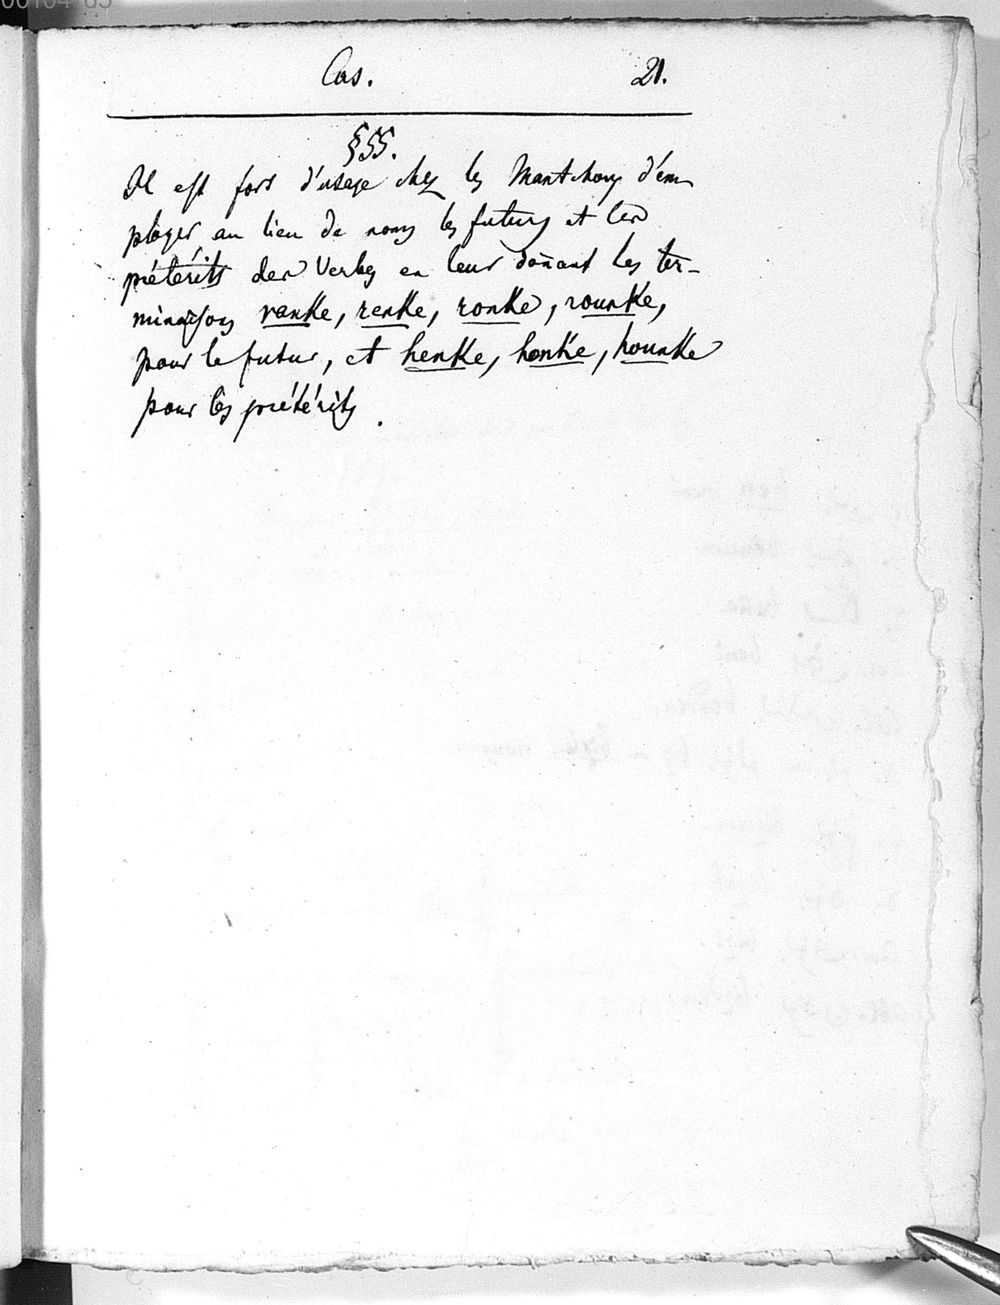 Cas. 21.
§55.
Il est fort d'usage chez les Mantchous d'em
ployer, au lieu de noms les futurs et les
prétérits des Verbes en leur doñant les ter-
minaisons ranke, renke, ronke, rounke,
pour le futur, et henke, honke, hounke
pour les prétérits.